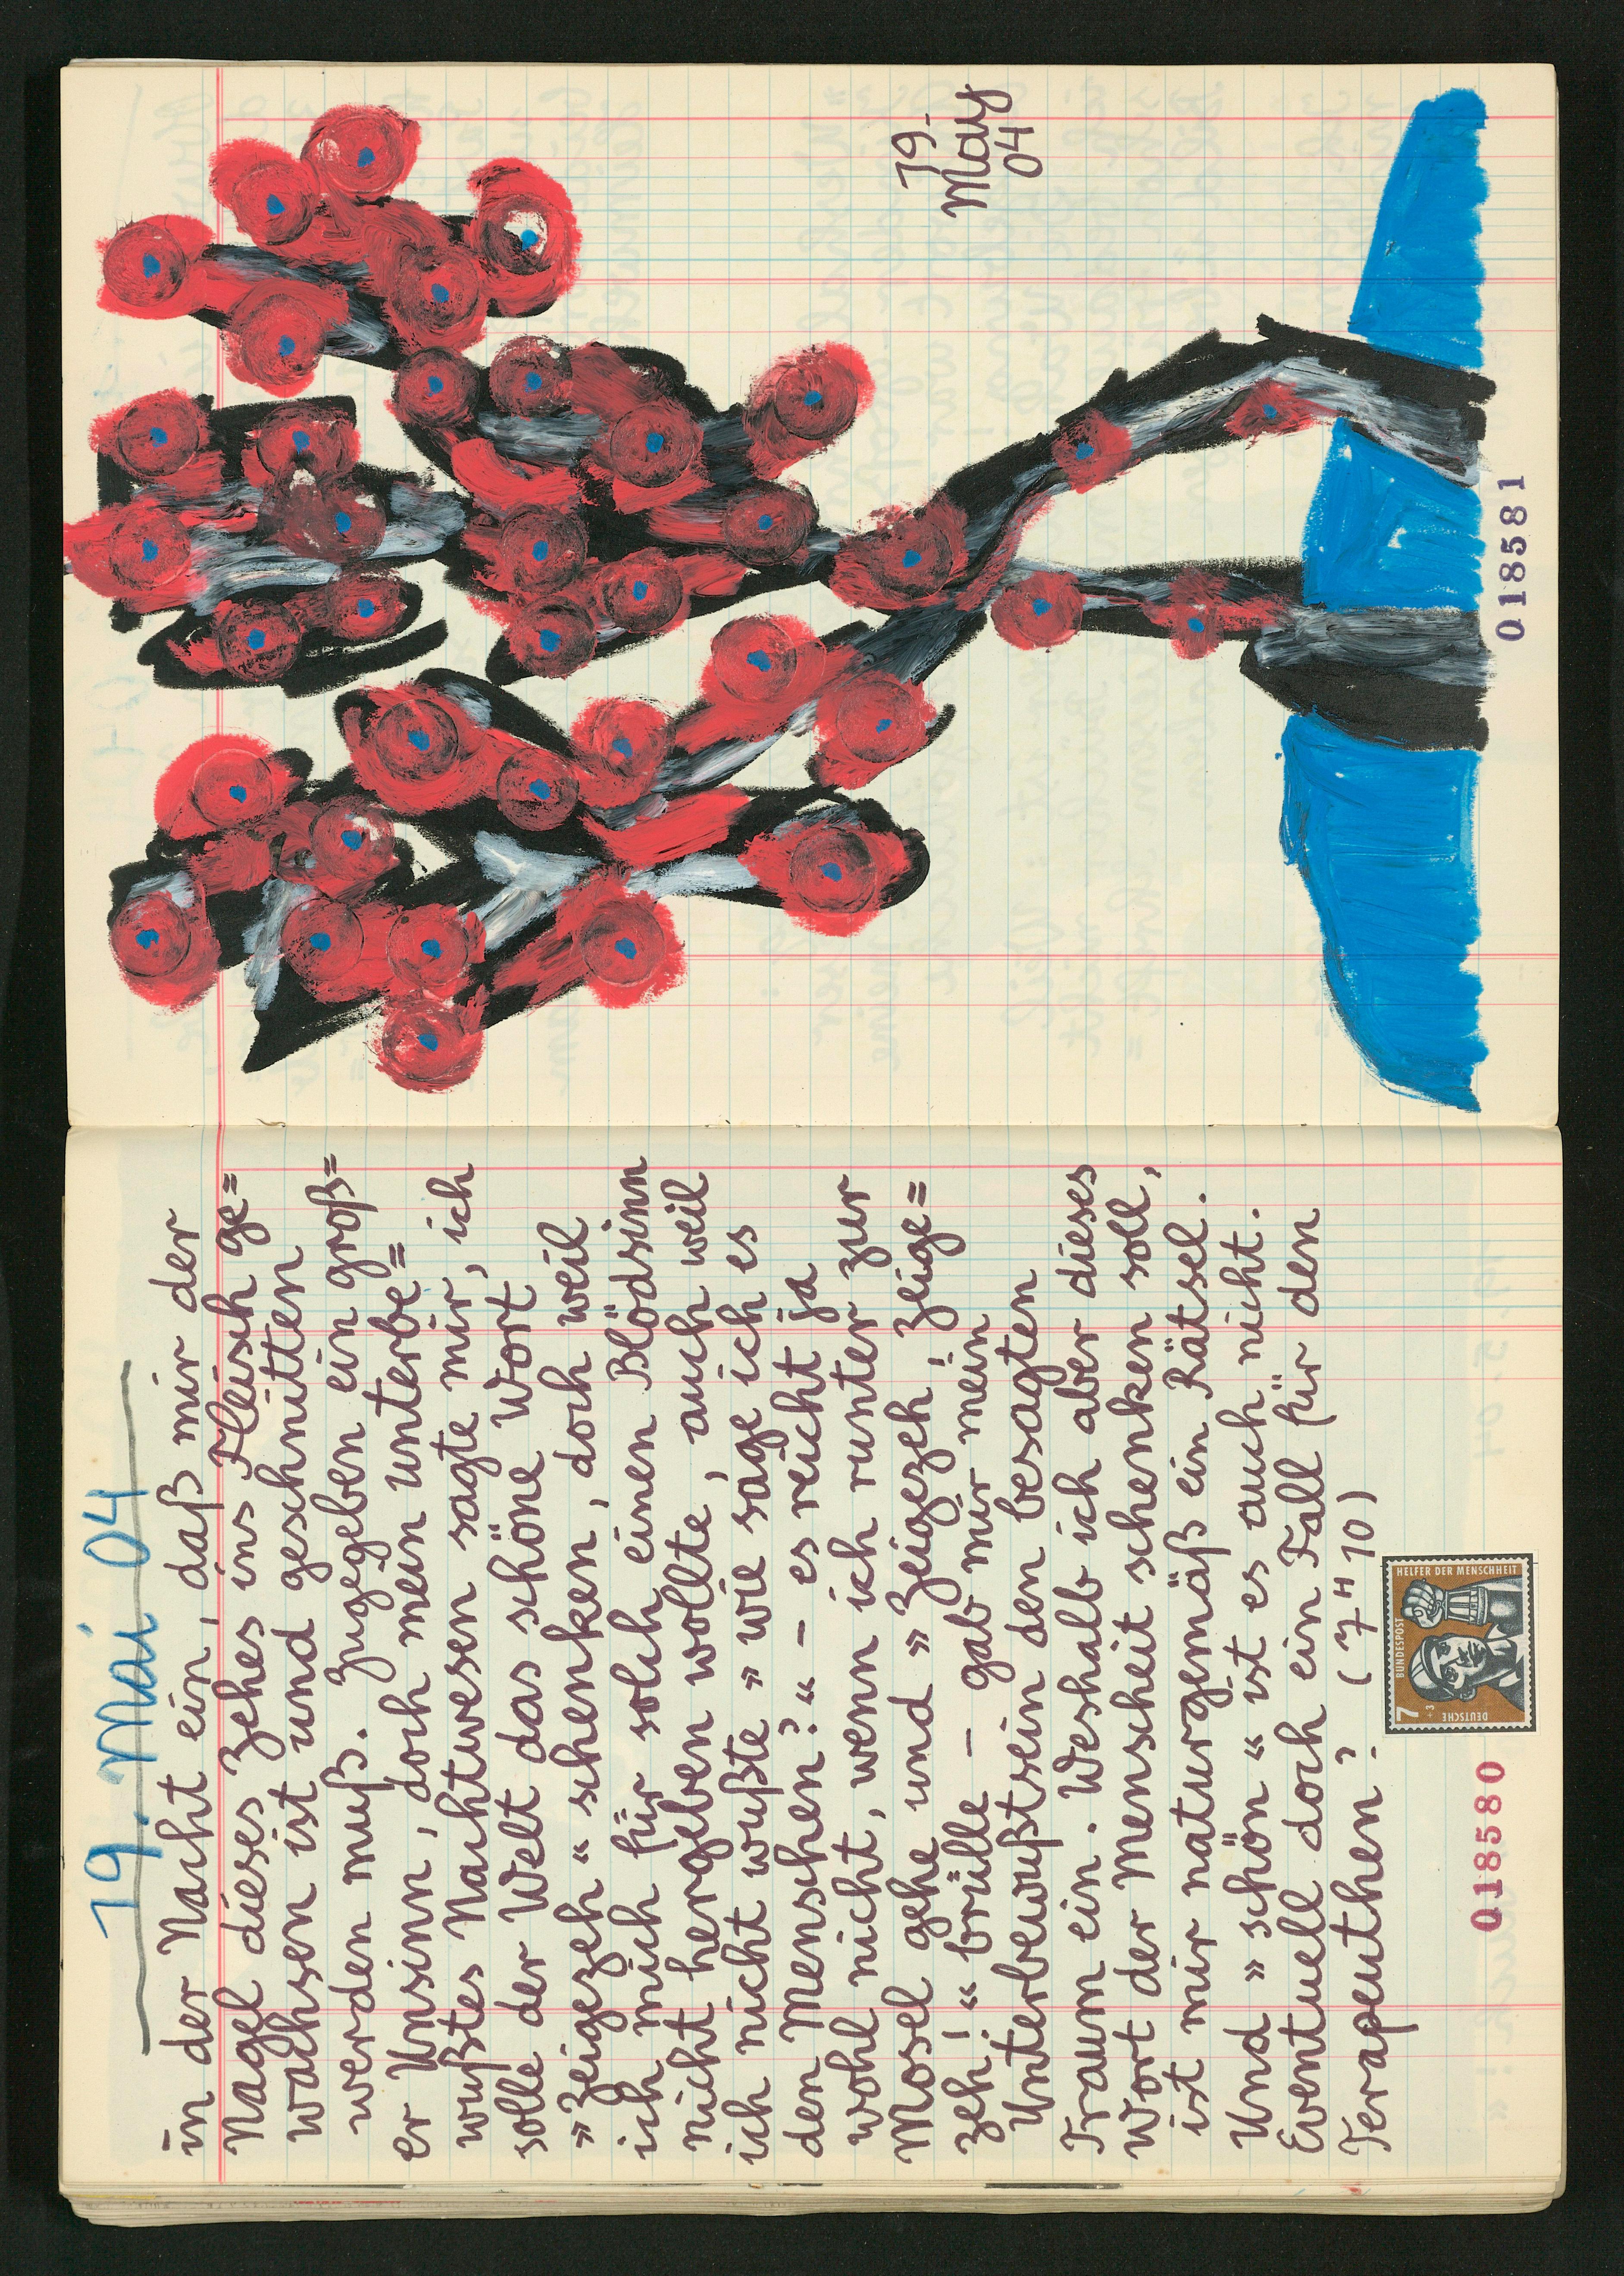 19. Mai 04
in der Nacht ein, daß mir der
Nagel dieses Zehes ins Fleisch ge=
wachsen ist und geschnitten
werden muß. Zugegeben ein groß=
er Unsinn, doch mein unterbe=
wußtes Nachtwesen sagte mir, ich
solle der Welt das schöne Wort
»Zeigezeh« schenken, doch weil
ich mich für solch einen Blödsinn
nicht hergeben wollte, auch weil
ich nicht wußte »wie sage ich es
den Menschen?« – es reicht ja
wohl nicht, wenn ich runter zur
Mosel gehe und »Zeigezeh! Zeige=
zeh!« brülle – gab mir mein
Unterbewußtsein den besagten
Traum ein. Weshalb ich aber dieses
Wort der Menscheit schenken soll,
ist mir naturgemäß ein Rätsel.
Und »schön« ist es auch nicht.
Eventuell doch ein Fall für den
Terapeuthen? (7 H 10)
018580
7
+3
DEUTSCHE
BUNDESPOST
HELFER DER MENSCHHEIT
19.
May
04
018581